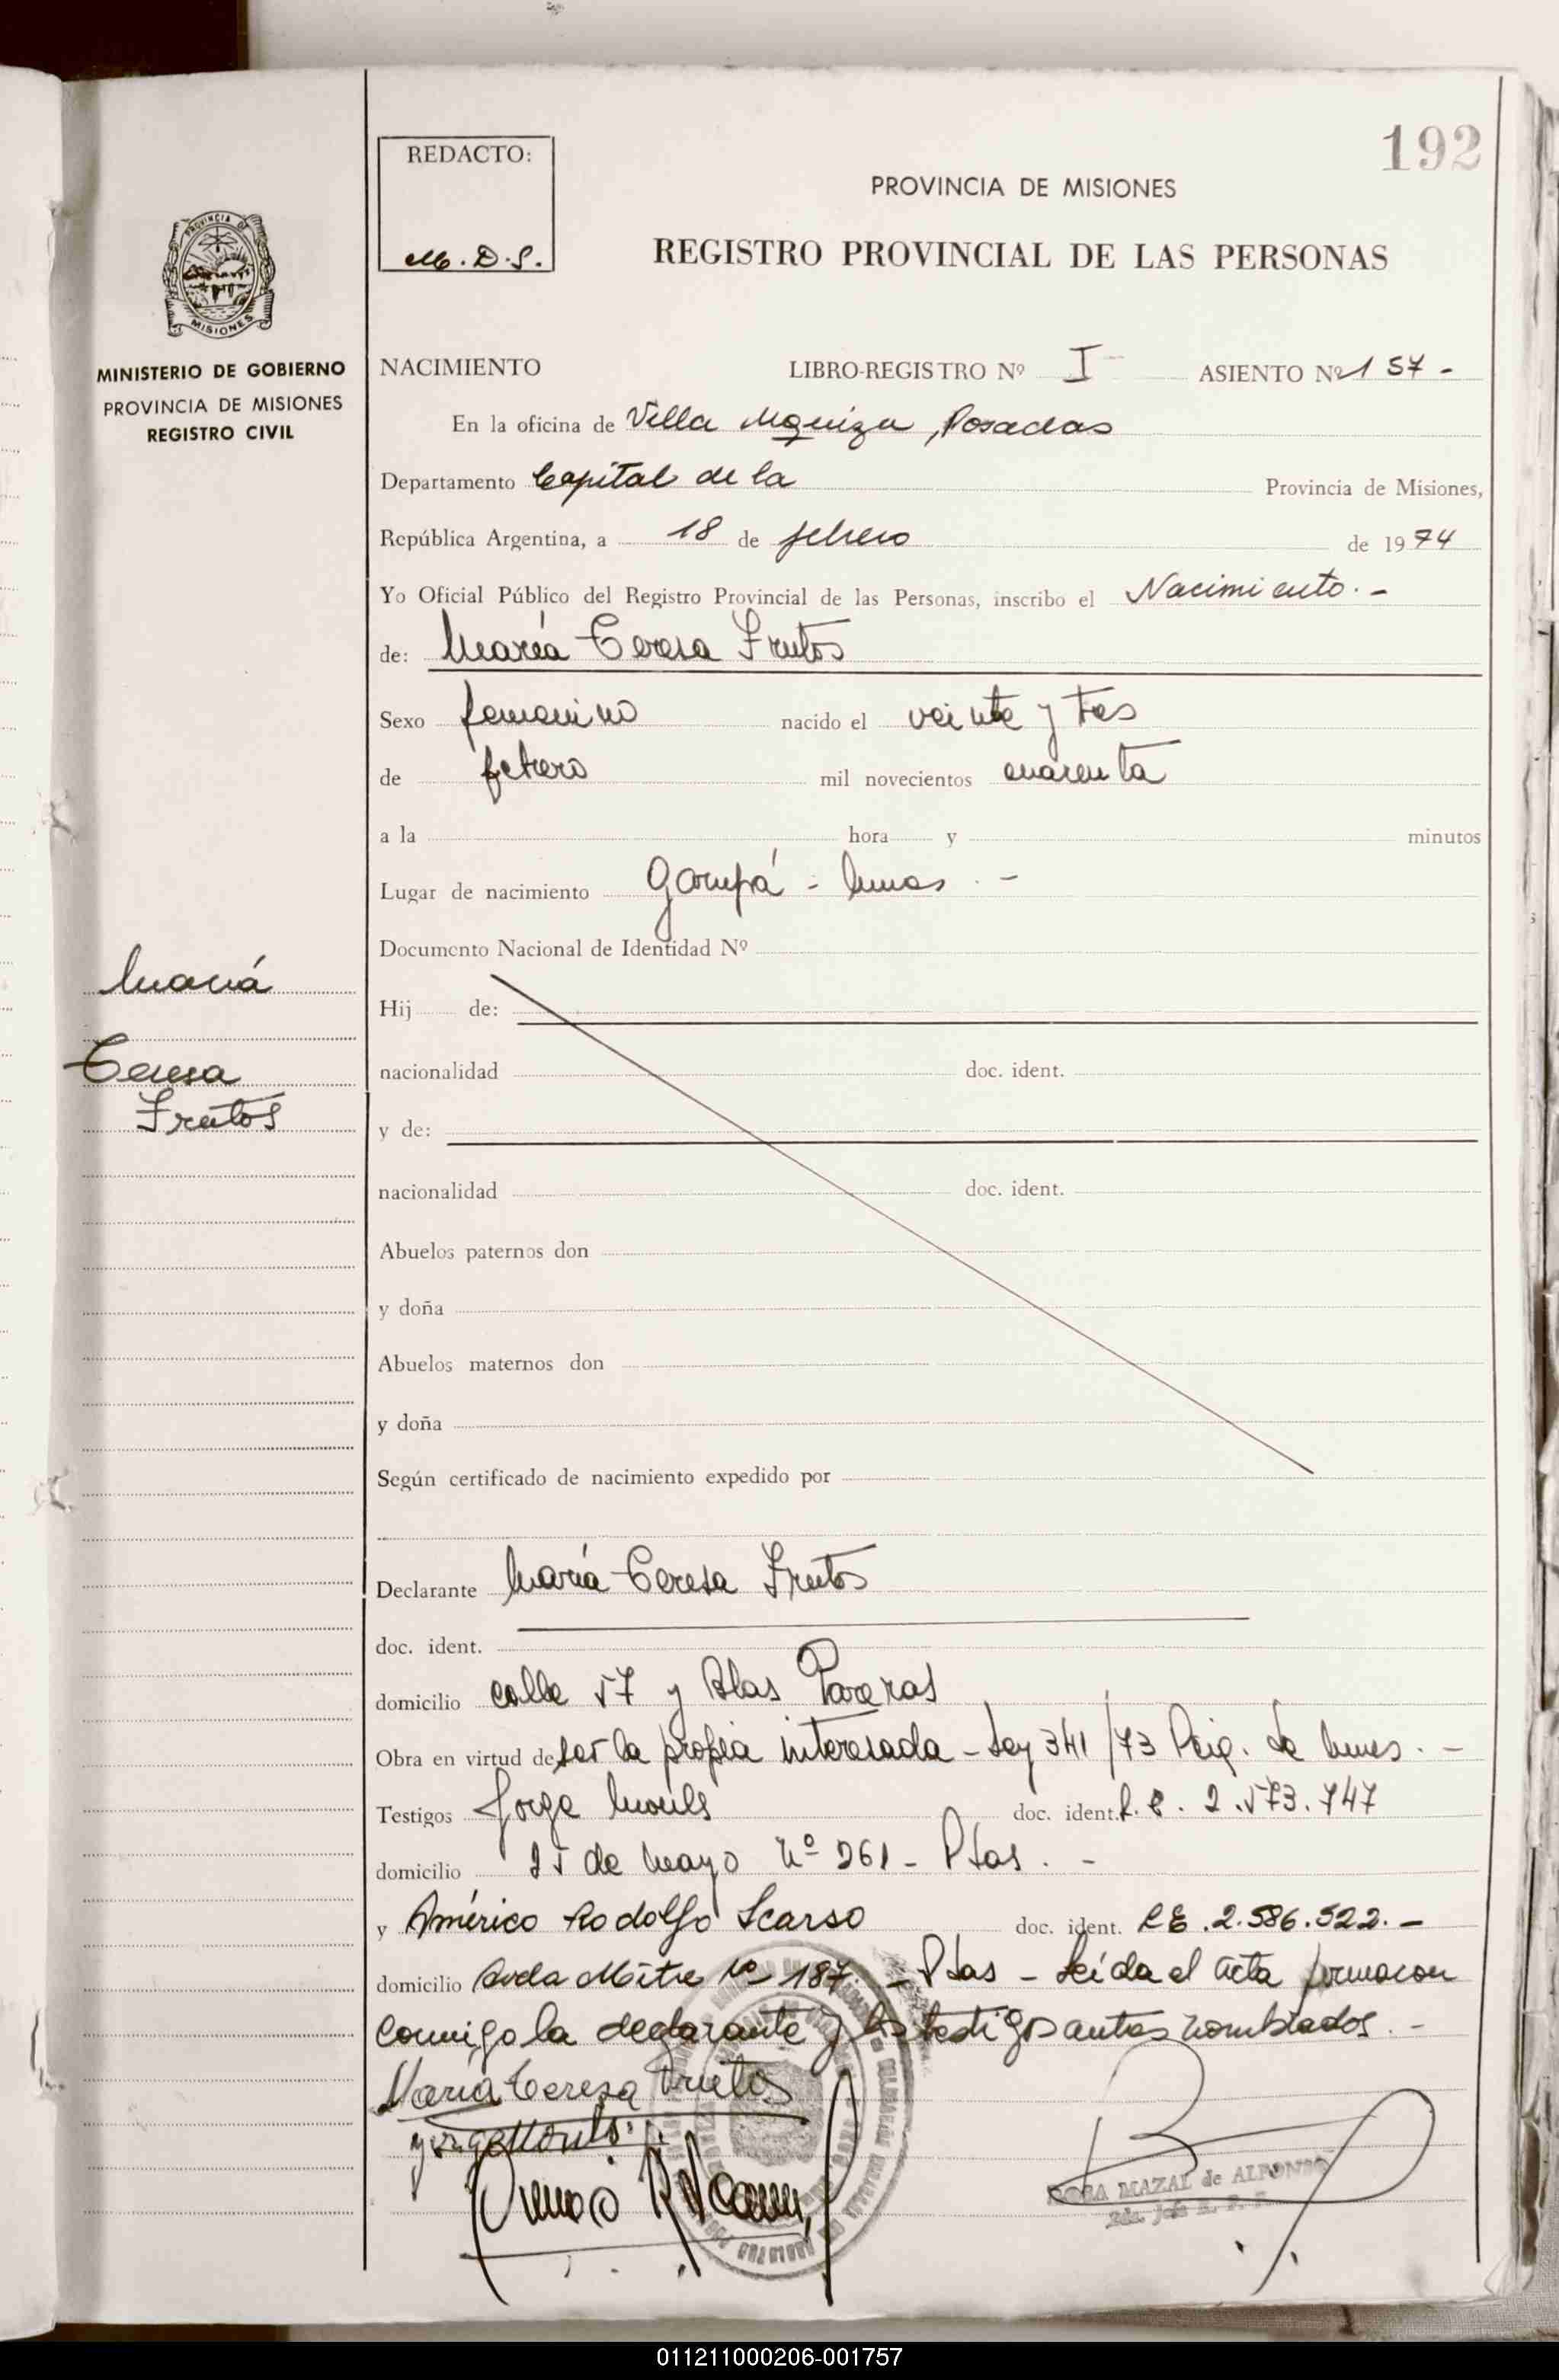 192
REDACTO:
M. D. S.
PROVINCIA DE MISIONES
REGISTRO PROVINCIAL DE LAS PERSONAS
PROVINCIA DE
MISIONES
MINISTERIO DE GOBIERNO
PROVINCIA DE MISIONES
REGISTRO CIVIL
NACIMIENTO LIBRO-REGISTRO Nº I ASIENTO Nº 157 -
En la oficina de Villa Urquiza, Posadas
Departamento Capital de la Provincia de Misiones,
República Argentina, a 18 de febrero de 1974
Yo Oficial Público del Registro Provincial de las Personas, inscribo el Nacimiento. -
de: María Teresa Frutos
Sexo femenino nacido el veinte y tres
de febrero mil novecientos cuarenta
a la hora y minutos
Lugar de nacimiento Garupá - . -
Documento Nacional de Identidad Nº
María
Hij de:
Teresa
nacionalidad doc. ident.
Frutos
y de:
nacionalidad doc. ident.
Abuelos paternos don
y doña
Abuelos maternos don
y doña
Según certificado de nacimiento expedido por
Declarante María Teresa Frutos
doc. ident.
domicilio calle 57 y Blas Pareras
Obra en virtud de ser la propia interesada - Ley 341/73 de . -
Testigos Jorge doc. ident. L. E. 2.573.747
domicilio 25 de Mayo Nº 261 - Pdas. -
y Américo Rodolfo Scarso doc. ident. L E. 2.586.522. -
domicilio Avda Mitre Nº 187. - Pdas - Leída el acta firmaron
conmigo la declarante y los testigos antes nombrados. -
María Teresa Frutos
ROSA MAZAL de ALFONSO
2da. Jefe R. P. P.
011211000206-001757